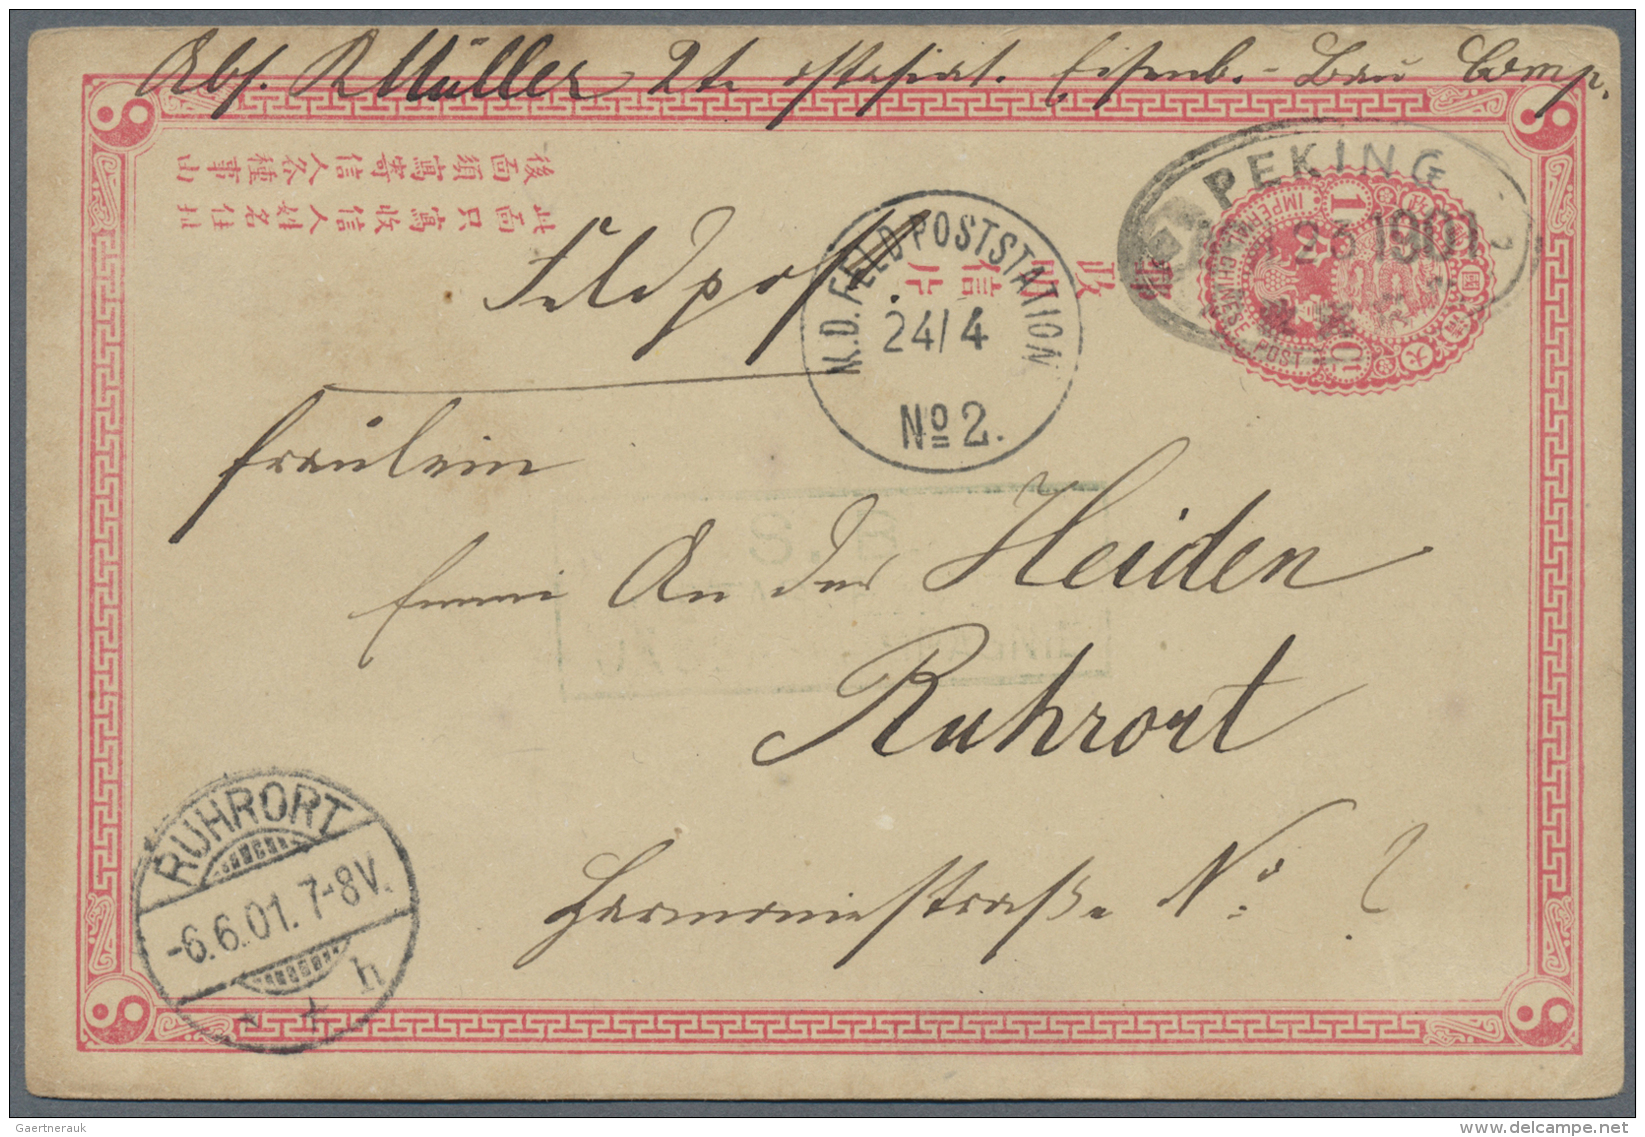 Abs. R Müller 2te ostasiat. Eisenb.-Bau Comp.
後面須寫寄信人各種事由
此面只寫收信人姓名住址
PEKING
26 1901
IMPERIAL CHINESE POST
1
大清國郵政
郵政明信片
Feldpost.
K.D. FELDPOSTSTATION
24/4
No 2.
Fräulein
Emmi An der Heiden
Ruhrort
Harmoniestraße No
S. B.
RUHRORT
-6.6.01. 7-8V.
* * h
Gaertnerauk
www.delcampe.net